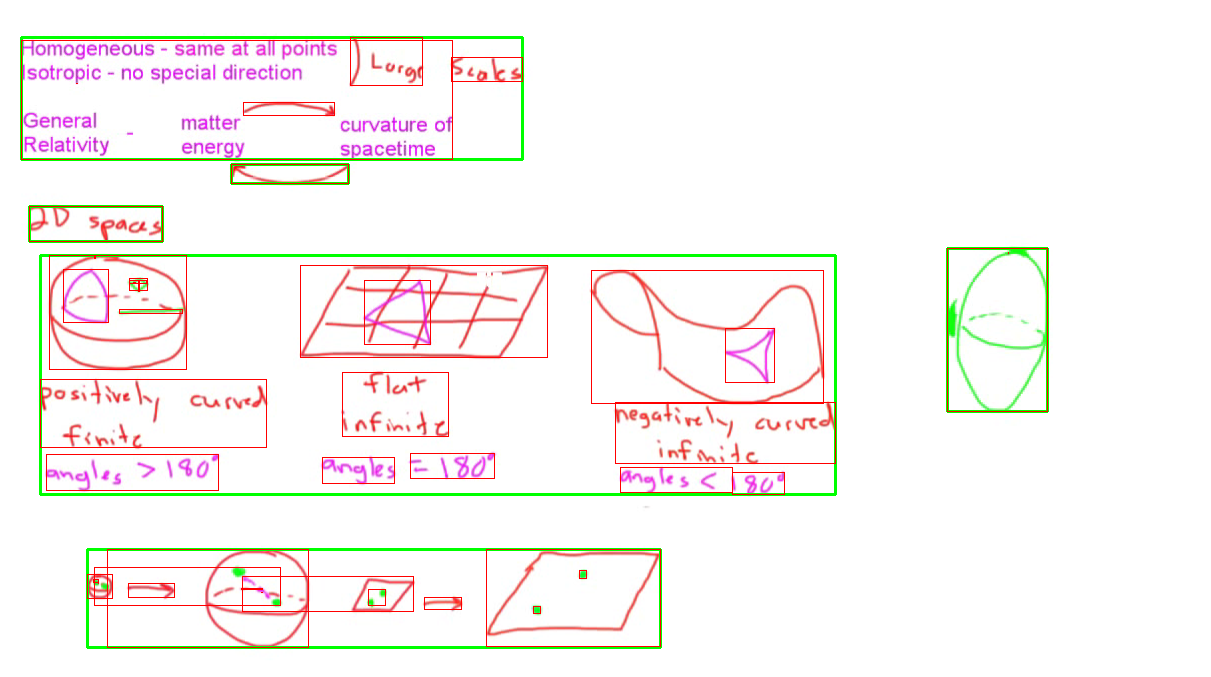 Homogeneous - same at all points
Isotropic - no special direction ) Large Scales
General Relativity - matter energy curvature of spacetime
2D spaces
positively curved
finite
angles > 180°
flat
infinite
angles = 180°
negatively curved
infinite
angles < 180°